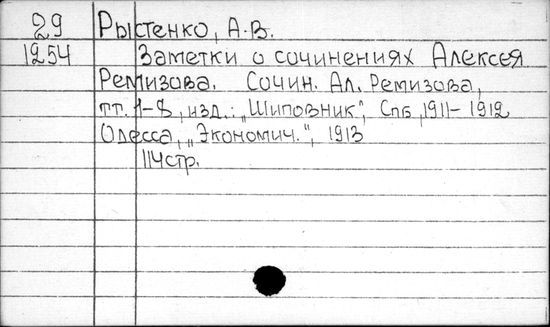 29 Рыстенко, А.В.
1254 Заметки о сочинениях Алексея
Ремизова. Сочин. Ал. Ремизова,
тт. 1-8, изд.: „Шиповник", Спб, 1911-1912
Одесса, „Экономич.", 1913
114стр.